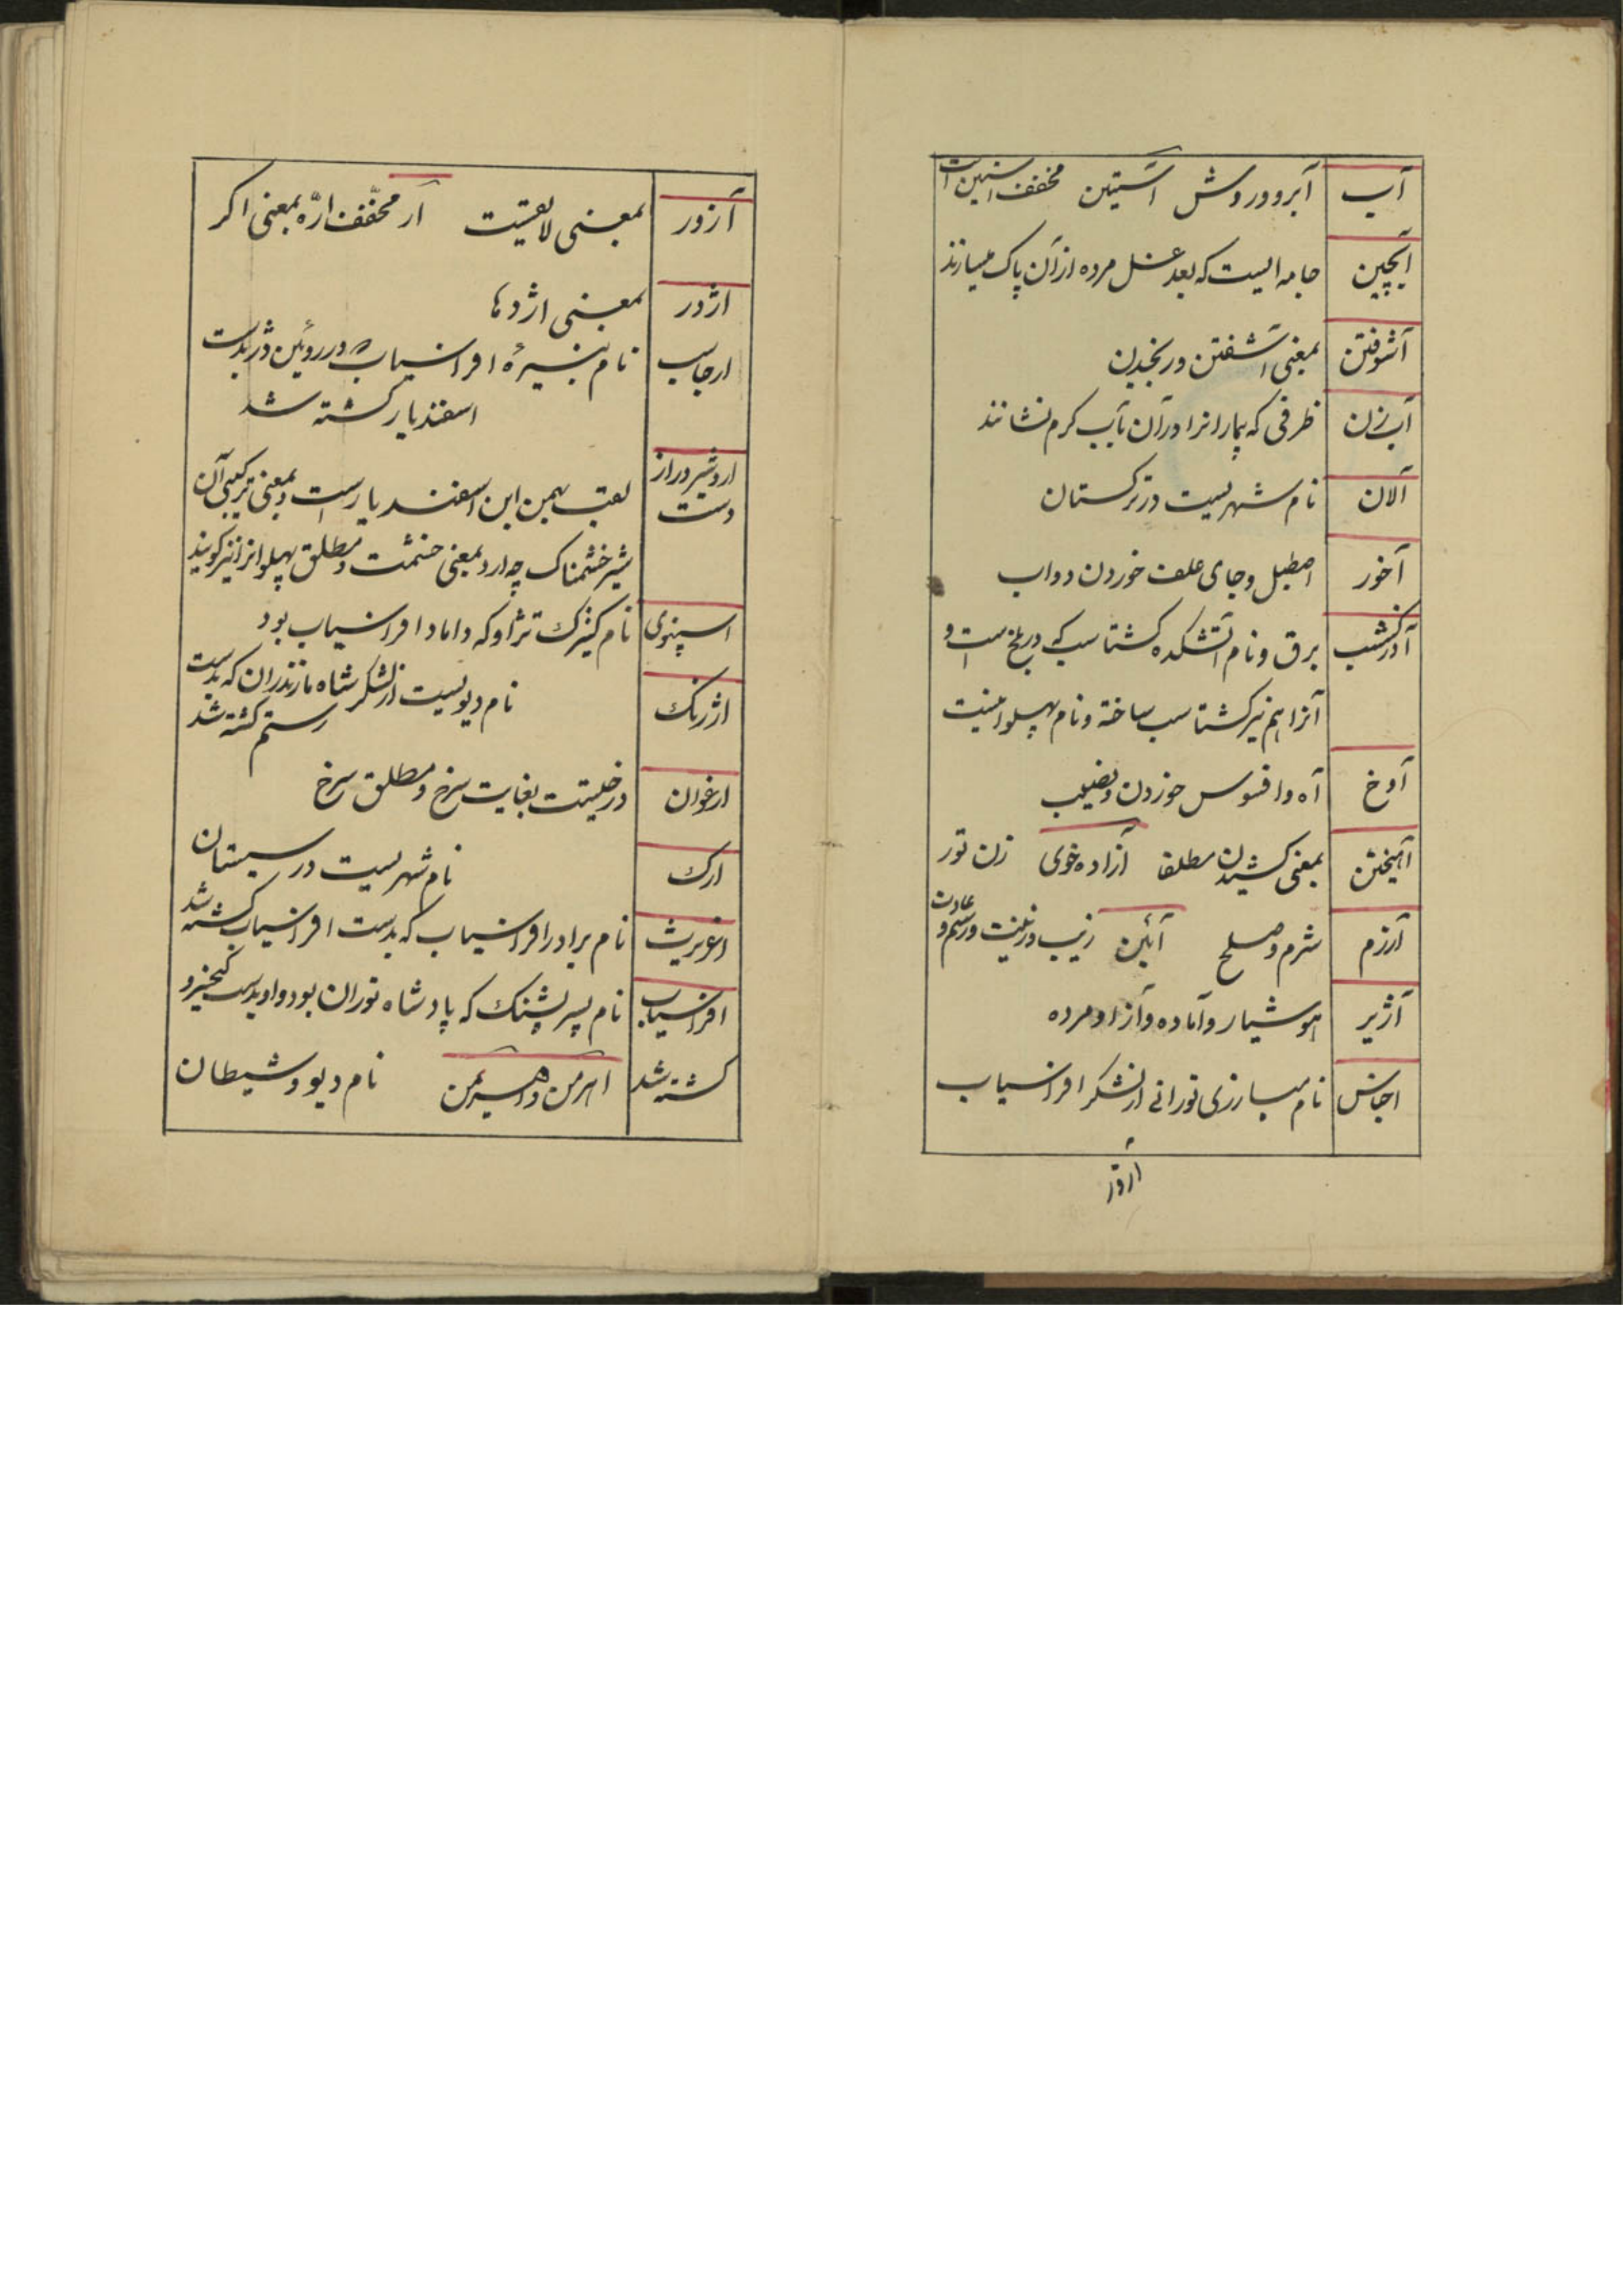 آب آبرو و روش آستین مخفف آستین است
آبچین جامه ایست که بعد غسل مرده از آن پاک میسازند
آشوفتن بمعنی آشفتن و رنجیدن
آب زن ظرفی که بیمارانرا در آن بآب کرم نشانند
آلان نام شهریست در ترکستان
آخور اصطبل و جای علف خوردن دواب
آذرکشسب برق و نام آتشکده کشتاسب که در بلخ است و
آنرا هم نیز کشتاسب ساخته و نام پهلوانیست
آوخ آه و افسوس خوردن و نصیب
آهیختن بمعنی کشیدن مطلقا آزاده خوی زن تور
آزرم شرم و صلح آئین زیب و زینت و رسم و عادت
آژیر هوشیار و آماده و آزاد مرده
اخاس نام مبارزی تورانی از لشکر افراسیاب
آزور
آزور بمعنی لایقیست ار مخفّف ارّه بمعنی اکر
اژدر بمعنی اژدها
ارجاسب نام نبیرهٔ افراسیاب که در روئین دژ بدست
اسفندیار کشته شد
اردشیر دراز دست لقب بهمن ابن اسفندیار است و بمعنی ترکیبی آن
شیر خشمناک چه ارد بمعنی خشمست و مطلق پهلوانرا نیز کویند
اسپنوی نام کنیزک تژاو که داماد افراسیاب بود
اژرنک نام دیویست از لشکر شاه مازندران که بدست
رستم کشته شد
ارغوان درخیست بغایت سرخ و مطلق سرخ
ارک نام شهریست در سیستان
اغریرث نام برادر افراسیاب که بدست افراسیاب کشته شد
افراسیاب نام پسر پشنک که پادشاه توران بود و او بدست کیخسرو
کشته شد اهرمن و اهریمن نام دیو و شیطان